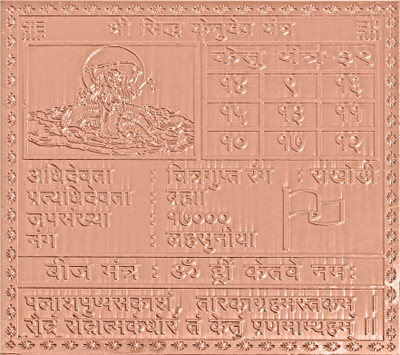 श्री सिद्ध केतुदेव यंत्र
केतु यंत्र-३९
१४ ९ १६
१५ १३ ११
१० १७ १२
अधिदेवता : चित्रगुप्त रंग : राखोडी
प्रत्यधिदेवता : ब्रह्मा
जपसंख्या : १७०००
नंग : लहसुनीया
बीज मंत्र : ॐ ह्रीं केतवे नमः
पलाशपुष्पसकाशं, तारकाग्रहमस्तकम् ।
रौद्रं रौद्रात्मकंघोरं तं केतुं प्रणमाम्यहम् ।।